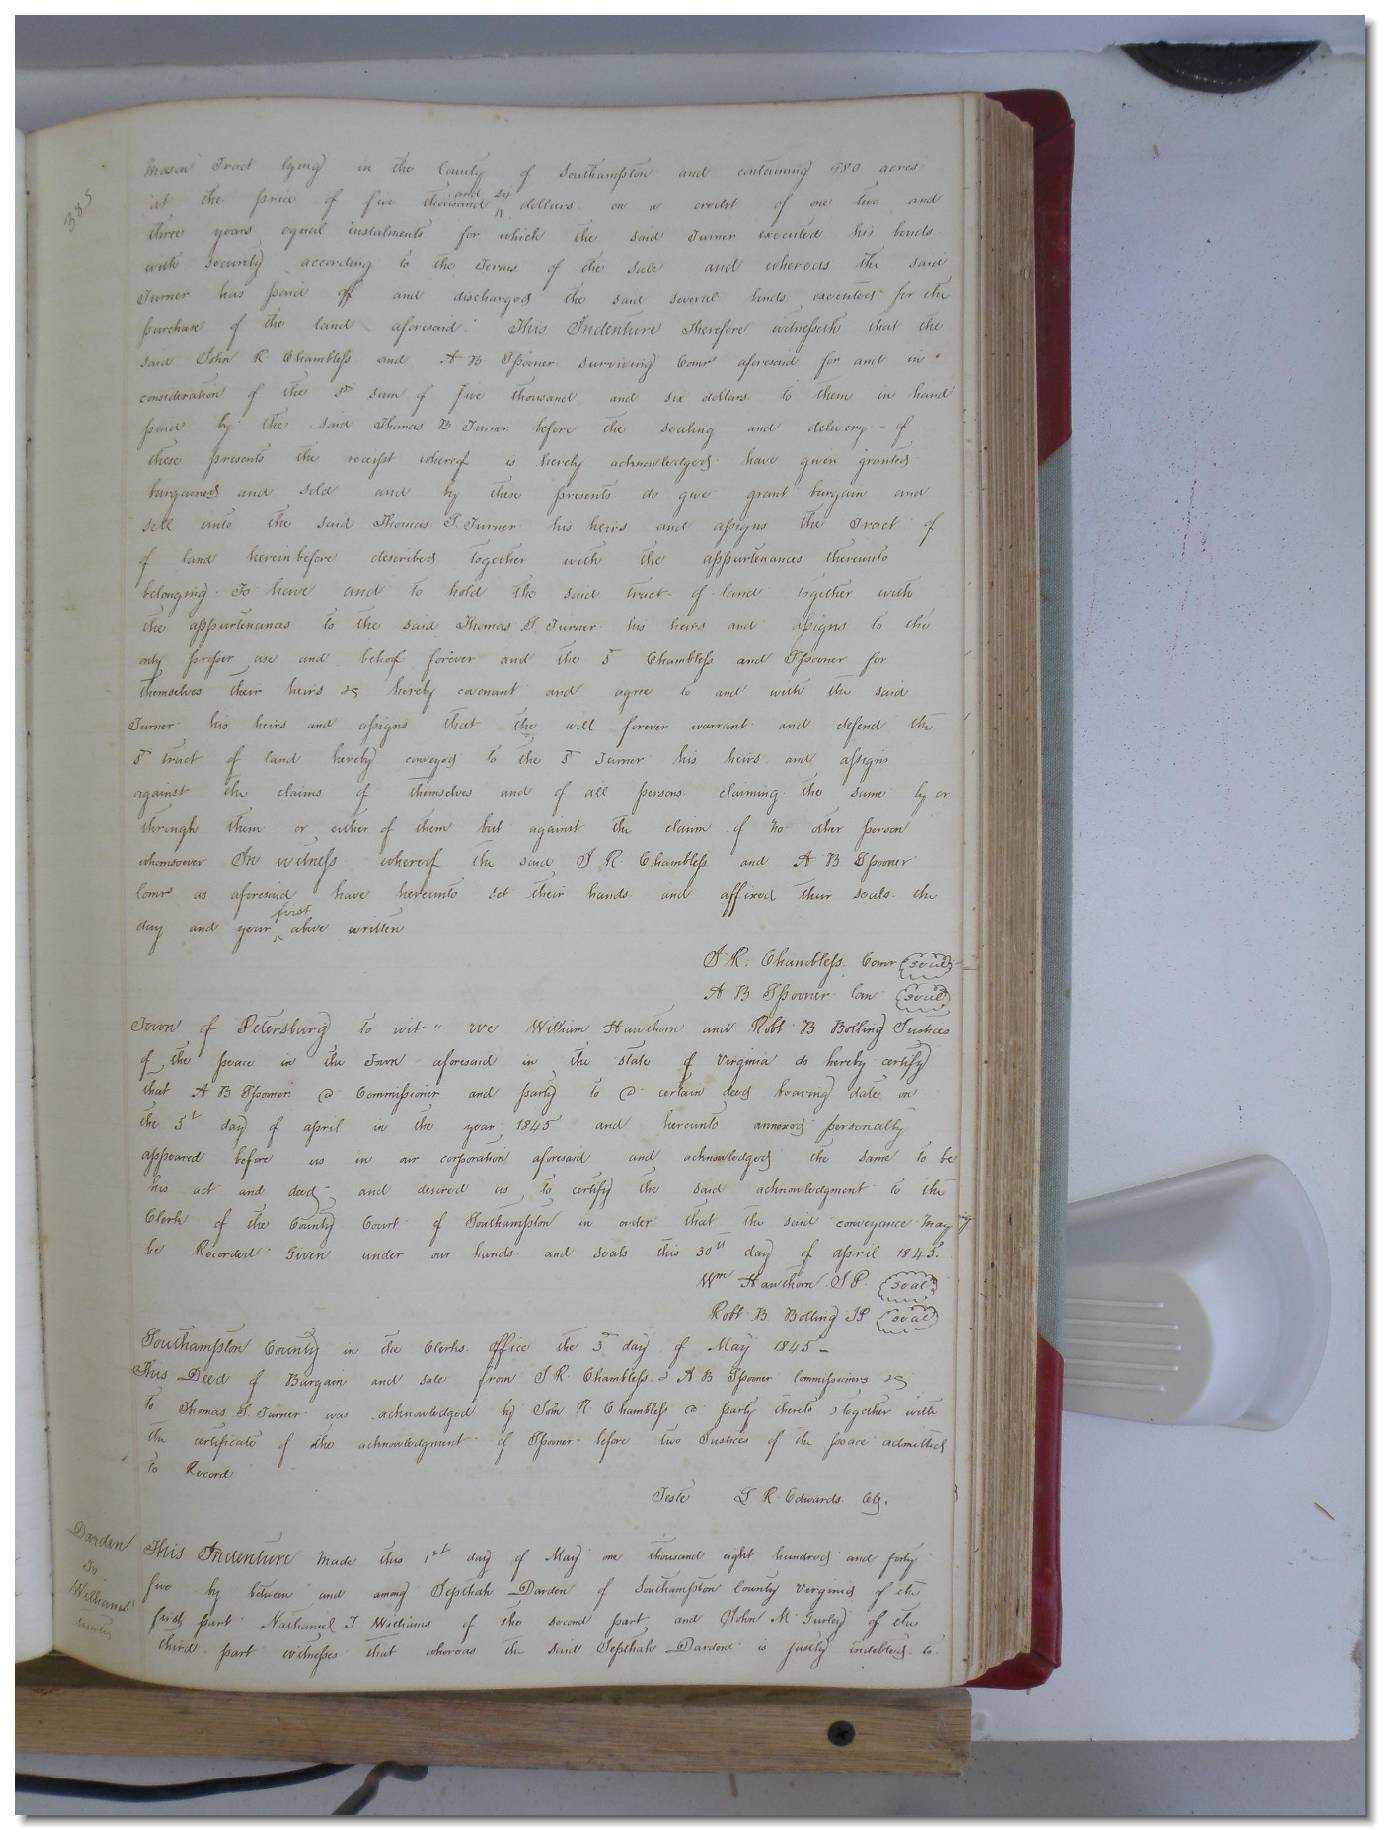 385
Mason Tract lying in the County of Southampton and containing 980 acres
at the price of five thousand and dollars on a credit of one two and
three years equal instalments for which the said Turner executed his bonds
with security according to the Terms of the sale and whereas the said
Turner has paid off and discharged the said several bonds executed for the
purchase of the land aforesaid. This Indenture Therefore witnesseth that the
said John R Chambless and A B Spooner surviving Comr aforesaid for and in
consideration of the sd sum of five thousand and six dollars to them in hand
paid by the said Thomas B Turner before the sealing and delivery of
these presents the receipt whereof is hereby acknowledged have given granted
bargained and sold and by these presents do give grant bargain and
sell unto the said Thomas T. Turner his heirs and assigns the Tract of
of land hereinbefore described together with the appurtenances thereunto
belonging. To have and to hold the said tract of land together with
the appurtenances to the said Thomas T. Turner his heirs and assigns to the
only proper use and behoof forever and the S Chambless and Spooner for
themselves their heirs &c hereby covenant and agree to and with the said
Turner his heirs and assigns that the will forever warrant and defend the
S tract of land hereby conveyed to the S Turner his heirs and assigns
against the claims of themselves and of all persons claiming the same by or
through them or either of them but against the claim of no other person
whomsoever In witness whereof the said J R. Chambless and A B Spooner
Comrs as aforesaid have hereunto set their hands and affixed their seals the
day and year first above written
J R. Chambless. Comr Seal
A B Spooner Com Seal
Town of Petersburg to wit " We William Hawthorn and Robt B Bolling Justices
of the peace in the Town aforesaid in the state of Virginia do hereby certify
that A B Spooner a Commissioner and party to a certain deed bearing date on
the 5t day of april in the year 1845 and hereunto annexed personally
appeared before us in our corporation aforesaid and acknowledged the same to be
his act and deed and desired us to certify the said acknowledgment to the
Clerk of the County Court of Southampton in order that the said conveyance may
be Recorded Given under our hands and seals this 30th day of april 1845.
Wm Hawthorn J P. Seal
Robt B. Bolling JP Seal
Southampton County in the Clerks office the 5 day of May 1845 -
This Deed of Bargain and sale from J R. Chambless & A B Spooner commissioners &c
to Thomas T. Turner was acknowledged by John R. Chambless a party thereto & together with
the certificate of the acknowledgment of Spooner before two Justices of the peace admitted
to Record
Teste L R. Edwards Clk.
Darden
To
Williams
This Indenture made this 1st day of May one thousand eight hundred and forty
five by between and among Jepthah Darden of Southampton County Virginia of the
first part Nathaniel T Williams of the second part and John M Gurley of the
third part witnesses that whereas the said Jepthah Darden is justly indebted to